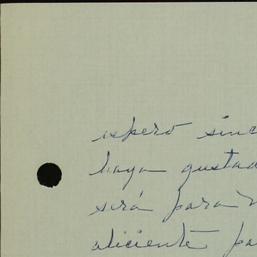 espero sinc
haya gustad
será para
aliciente pa